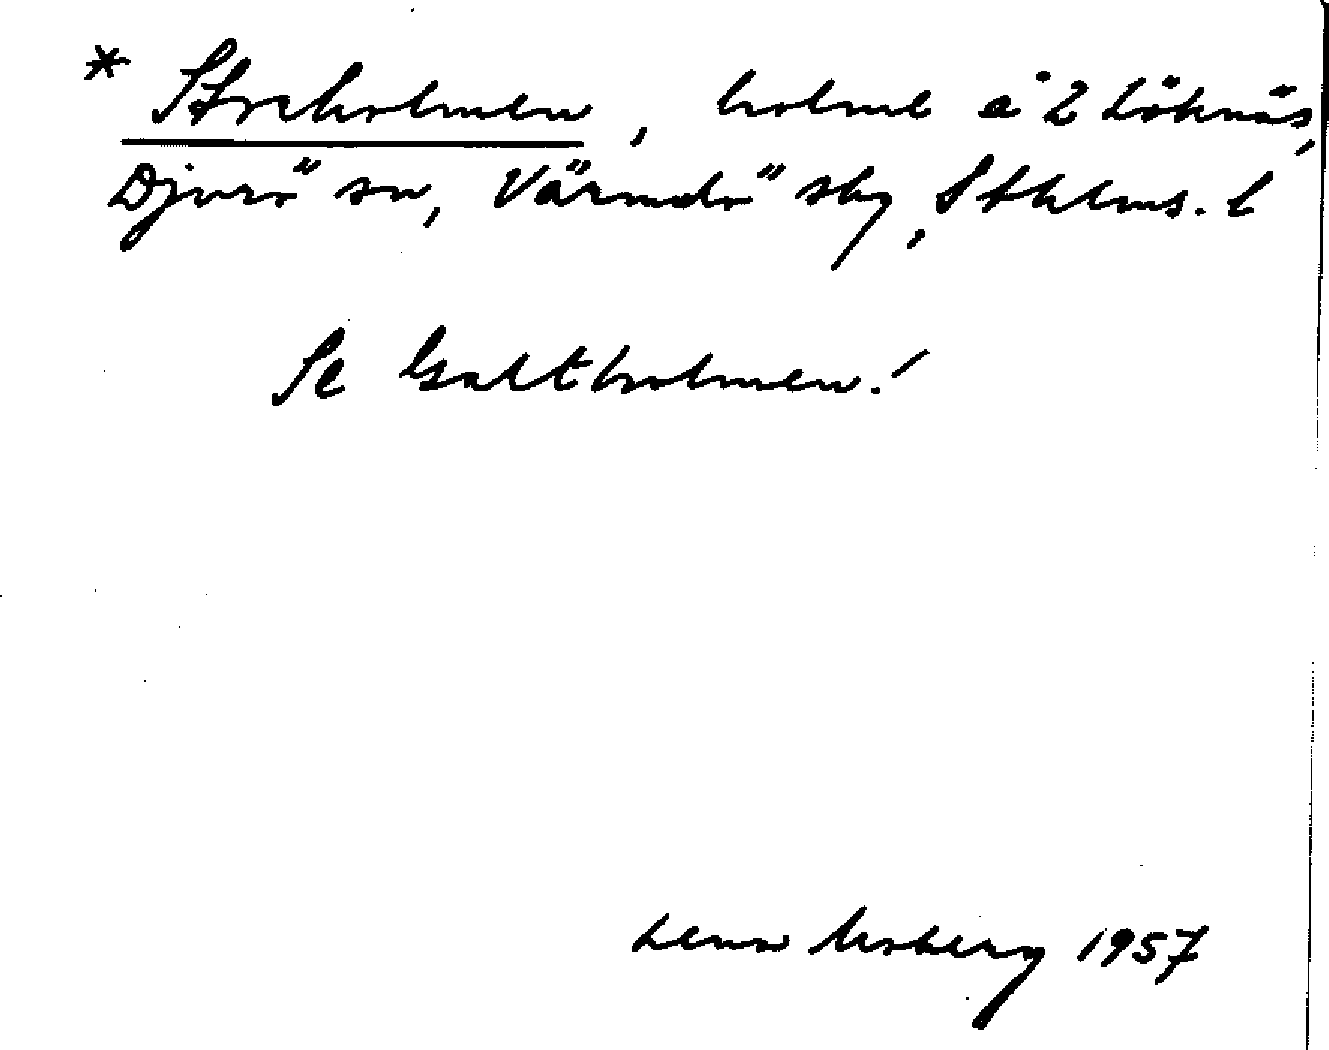 * Storholmen, holme å 2 Löknäs,
Djurö sn, Värmdö sky, Sthlms. l
Se Galtholmen!
Lena Moberg 1957